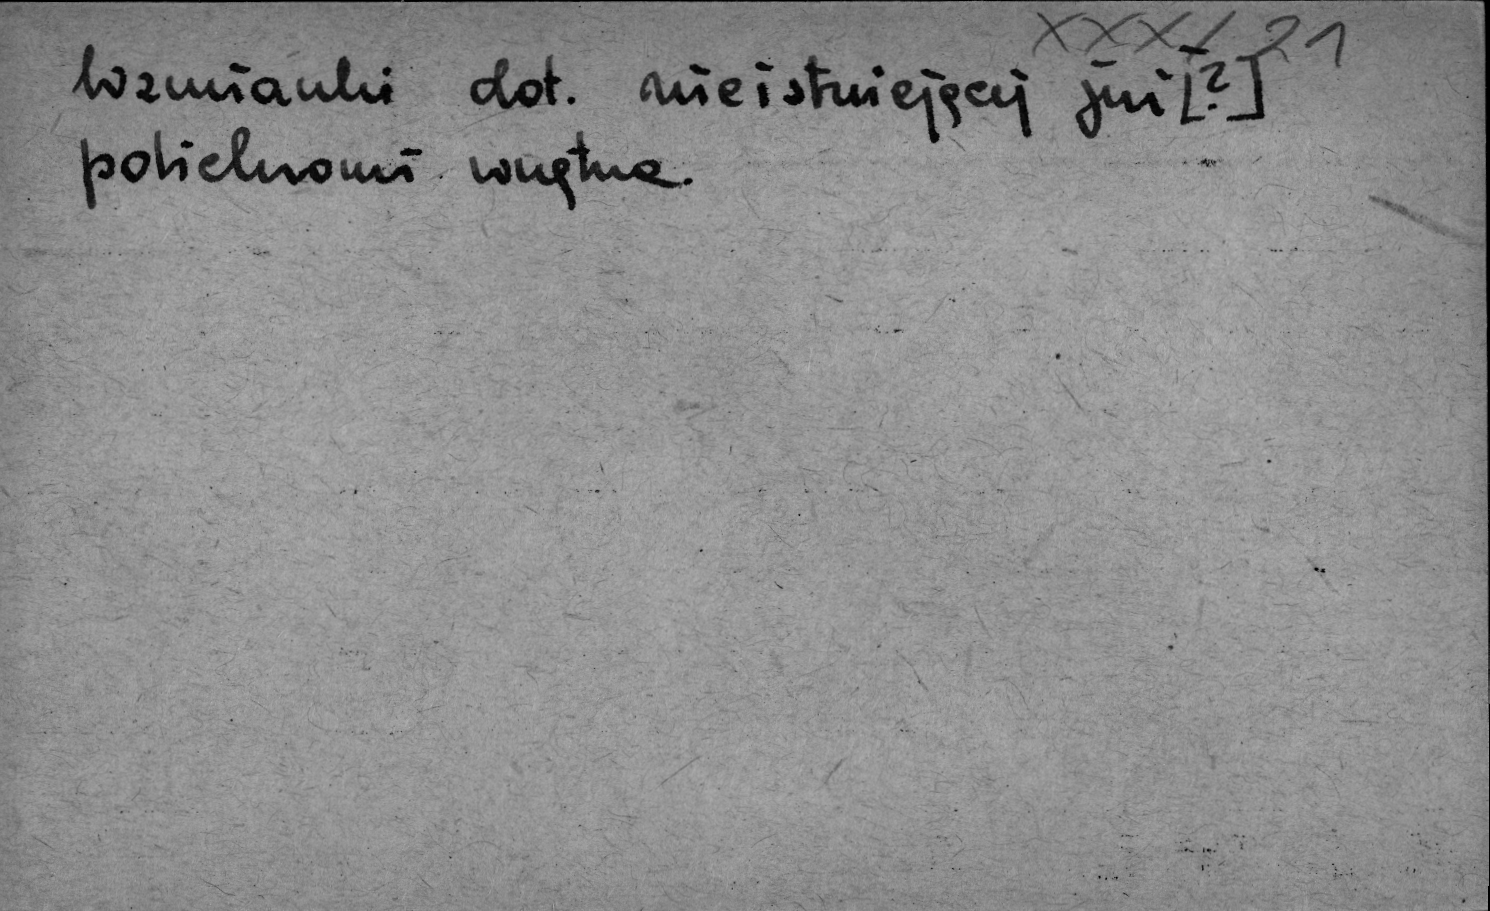 XXX/21
wzmianki dot. nieistniejącej już [?]
polichromi wnętrza.